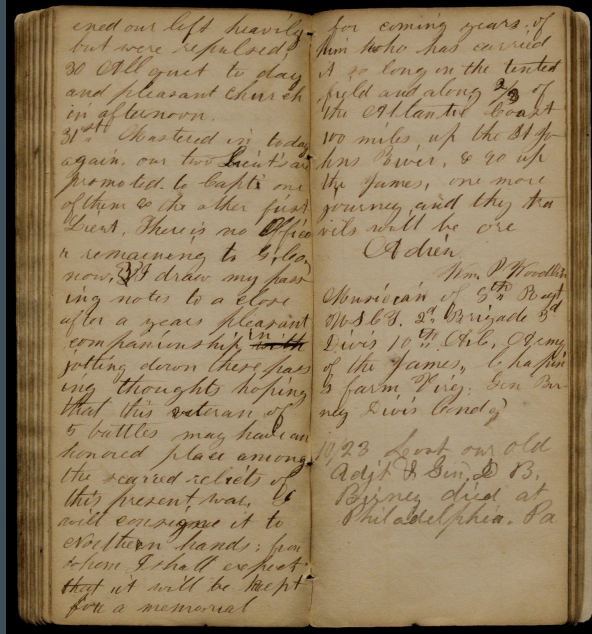 ened our left heavily
but were repulsed,
30 All quiet to day
and pleasant church
in afternoon.
31st Mustered in today
again. our two Lieut's are
promoted. to Capt: one
of them & the other first
Lieut, There is no Office
r remaineing to G, Co,
now, I draw my pass
ing notes to a close
after a years pleasant
companionship in
jotting down these pass
ing thoughts hoping
that this veteran of
5 battles may have an
honored place among
the scarred relicts of
this present war. I
will consigne it to
Northern hands; from
whom I shall expect
that it will be kept
for a memorial
for coming years. of
him who has carried
it so long in the tented
field and along 2/3 of
the Atlantic Coast
100 miles, up the St Jo
hns River, & 90 up
the James, one more
journey, and they tra
vils will be ore
Adieu.
Wm. P. Woodlin
Musician of 8th Regt
U.S.C.T. 2d Brigade 3d
Divis 10th A.C. Army
of the James, Chapin
s farm Virg: Gen Bir-
ney Divis Comdg
10, 23 Lost our old
Adjt & Gen. D B.
Birney died at
Philadelphia. Pa